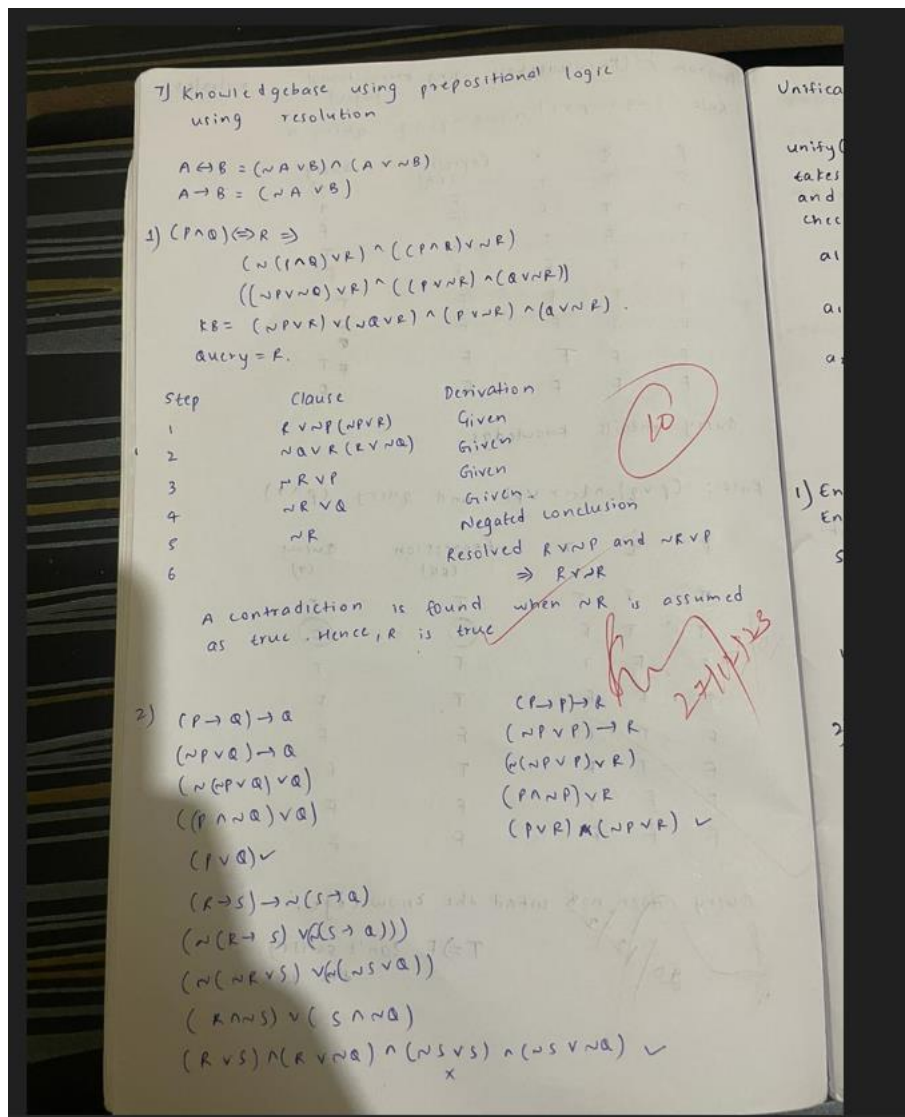 7) Knowledgebase using prepositional logic
using resolution
A ↔ B = (~A ∨ B) ∧ (A ∨ ~B)
A → B = (~A ∨ B)
1) (P∧Q) ⇔ R ⇒
(~(P∧Q) ∨ R) ∧ ((P∧Q) ∨ ~R)
((~P∨~Q) ∨ R) ∧ ((P∨~R) ∧ (Q∨~R))
KB = (~P∨R) ∨ (~Q∨R) ∧ (P∨~R) ∧ (Q∨~R).
Query = R.
Step Clause Derivation
1 R∨~P (~P∨R) Given
2 ~Q∨R (R∨~Q) Given
3 ~R∨P Given
4 ~R∨Q Given
5 ~R Negated conclusion
6 Resolved R∨~P and ~R∨P
⇒ R∨~R
10
A contradiction is found when ~R is assumed
as true. Hence, R is true
2) (P → Q) → Q
(~P∨Q) → Q
(~(~P∨Q) ∨ Q)
((P∧~Q) ∨ Q)
(P∨Q) ✓
(P→P)→R
(~P∨P) → R
(~(~P∨P)∨R)
(P∧~P)∨R
(P∨R) ∧ (~P∨R) ✓
(R→S) → ~(S→Q)
(~(R→S) ∨ (~(S→Q)))
(~(~R∨S) ∨ (~(~S∨Q))
(R∧~S) ∨ (S∧~Q)
(R∨S) ∧ (R∨~Q) ∧ (~S∨S) ∧ (~S∨~Q) ✓
x
Unifica
unify(
takes
and
chec
al
a
1) En
En
S
2